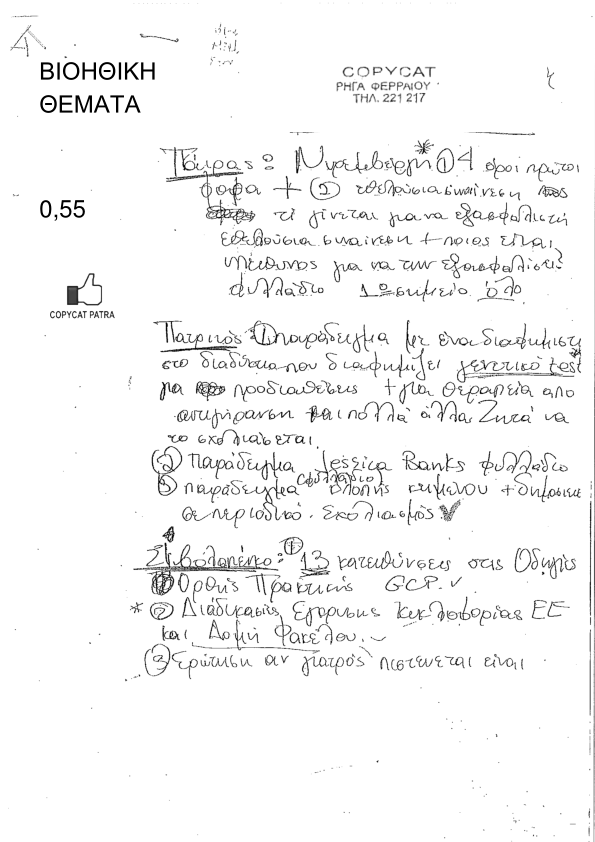 ΒΙΟΗΘΙΚΗ
ΘΕΜΑΤΑ
COPYCAT
ΡΗΓΑ ΦΕΡΡΑΙΟΥ
ΤΗΛ. 221 217
0,55
COPYCAT PATRA
Πούρας: Νυρεμβέργη * ① 4 οροι πρώτοι
φαρα + ② εθελούσια συναίνεση
τί γίνεται για να εξασφαλιστή
εθελούσια συναίνεση + ποιος είναι
υπεύθυνος για να την εξασφαλίσει?
φυλλάδιο 1ο σημείο όλο
Πατρινός ① παράδειγμα με ένα διαφημιστή
στο διαδύκτιο που διαφημίζει γενετικό test
για προδιαθέσεις + για θεραπεία απο
αντιγήρανση και πολλά άλλα Ζητά να
το σχολιάσεται
② Παράδειγμα Jessica Banks φυλλάδιο
③ παράδειγμα (φυλλάδιο) κλοπής κειμένου + δημοσίευσε
σε περιοδικό. Σχολιασμός ✓
① 13 κατευθύνσεις στις Οδηγίες
Ορθής Πρακτικής GCP. ✓
* ② Διάδικασίες Έγκρισης Κυκλοφορίας ΕΕ
και Δομή Φακέλου. ✓
③ Ερώτηση αν γιατρός πιστεύεται είναι